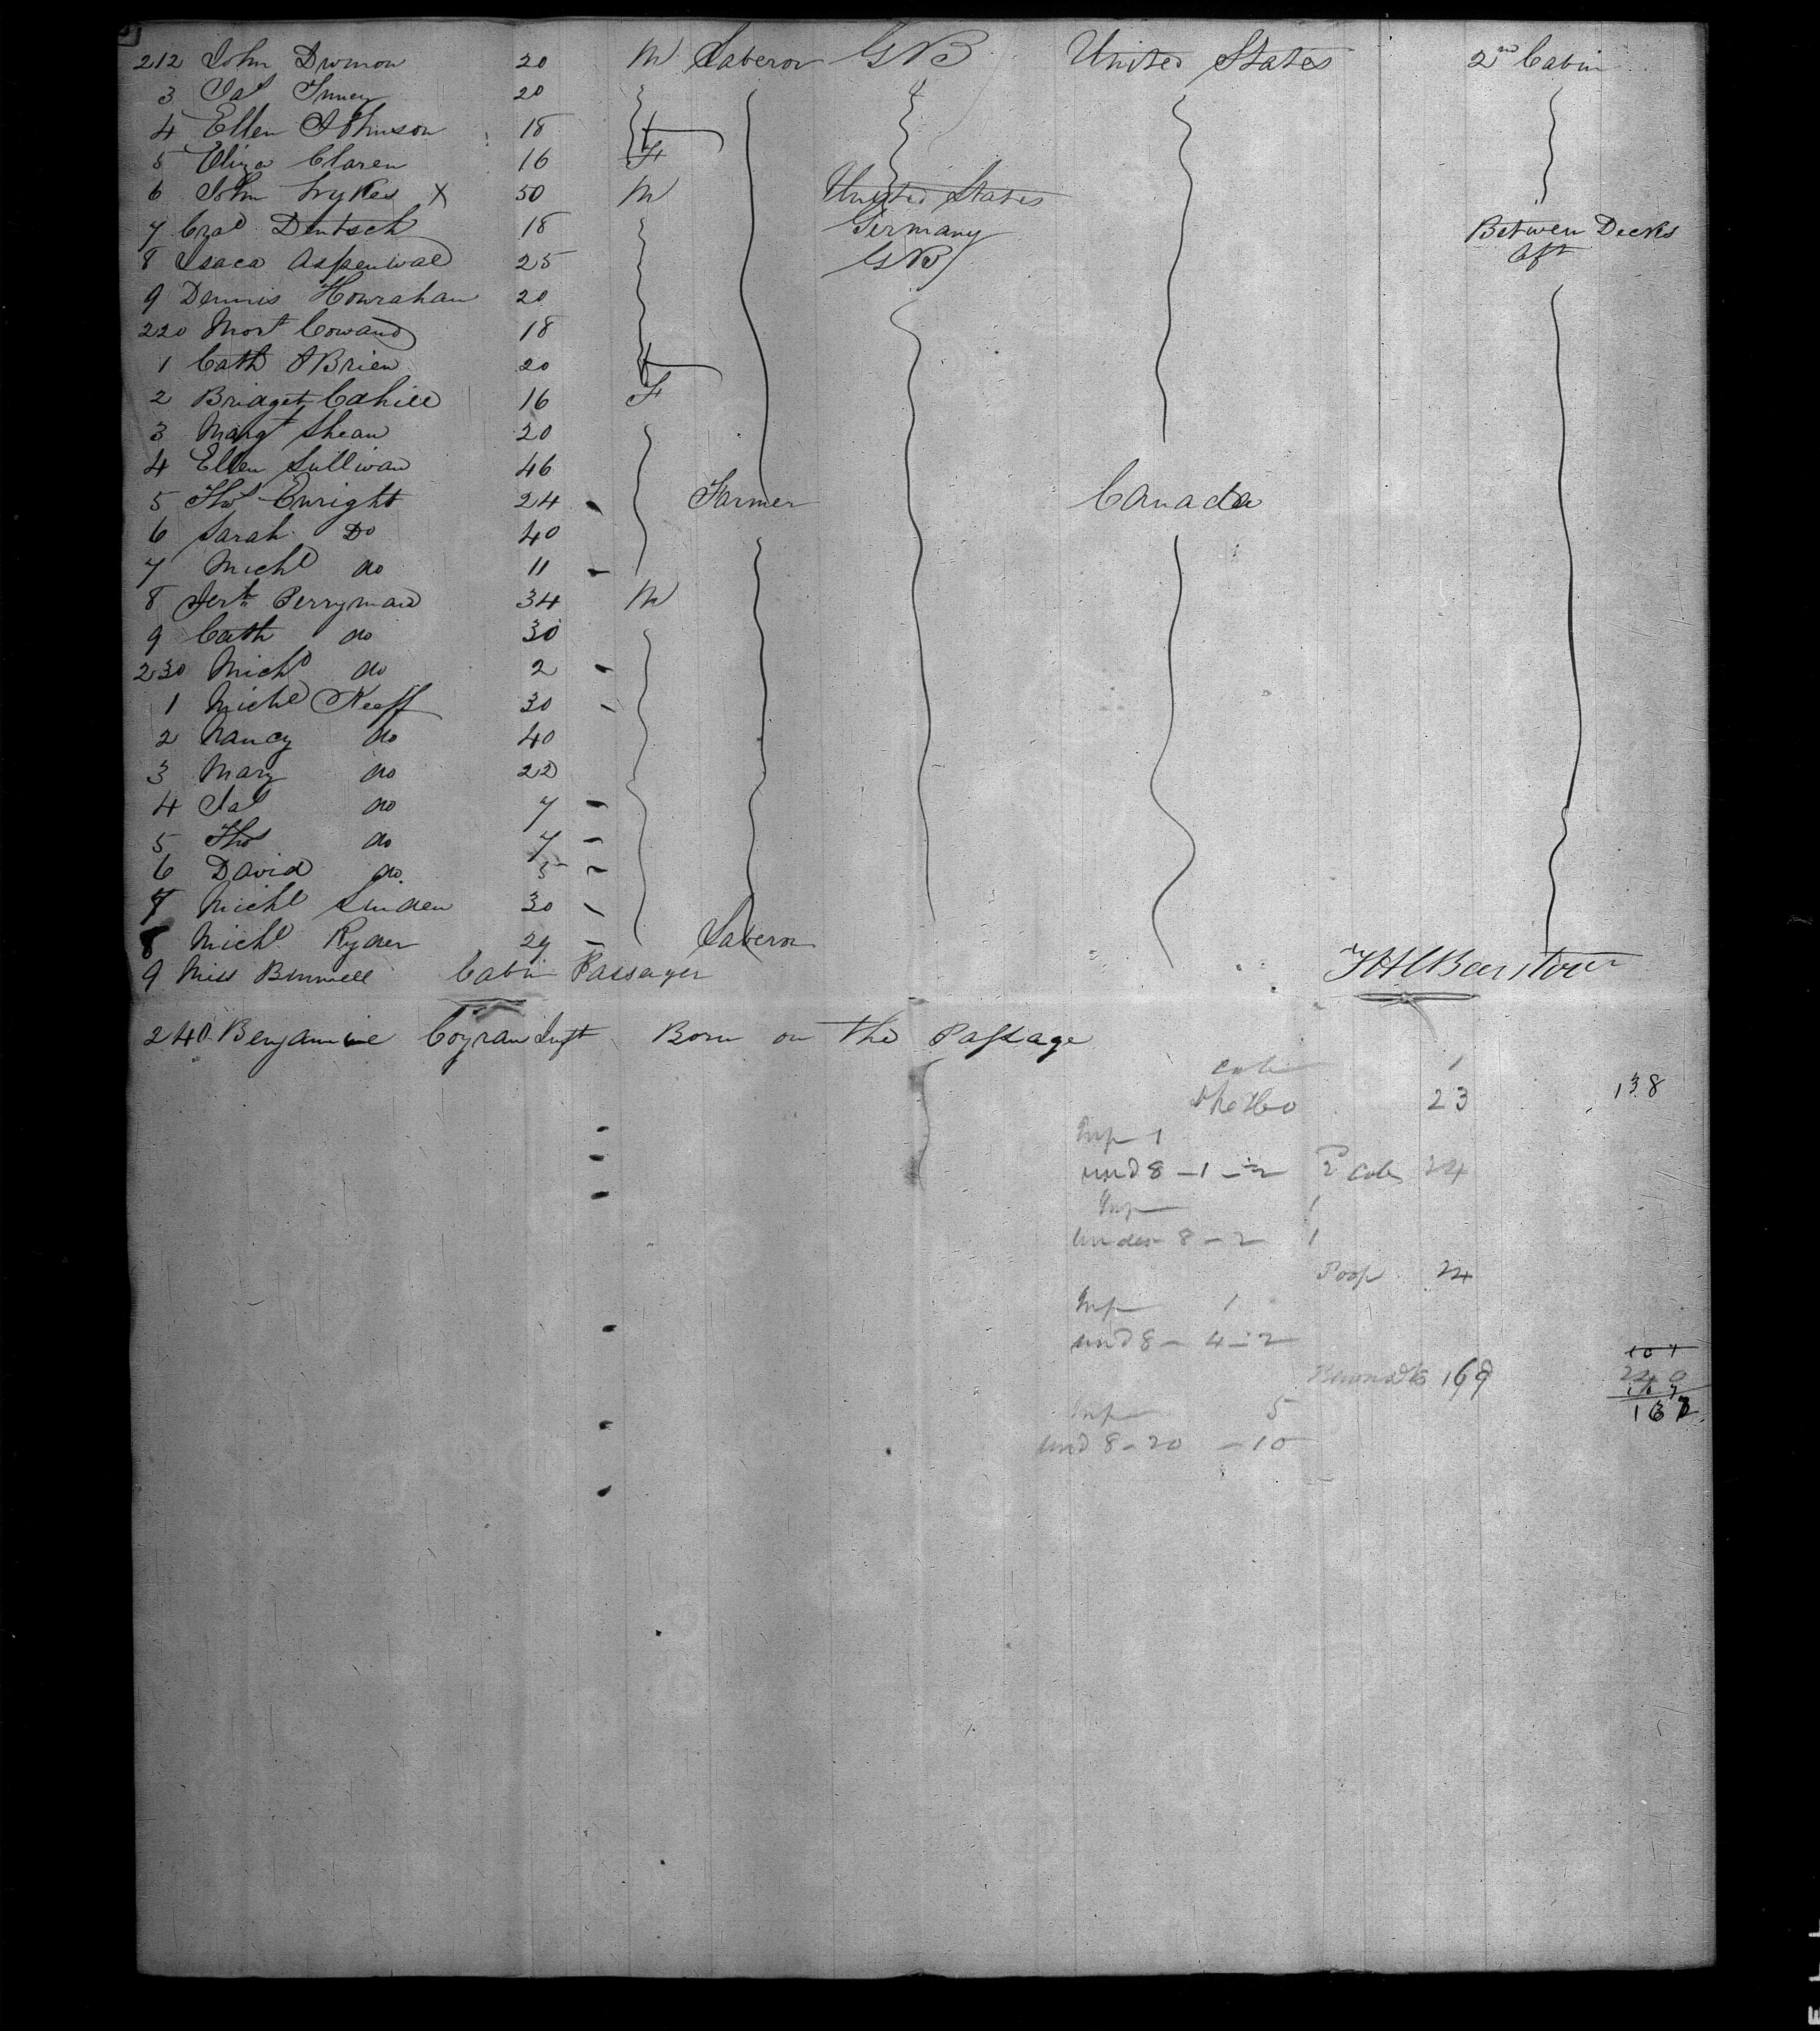 212 John 20 M Laberor GB United States 2nd Cabin
3 Jas 20
4 Ellen Johnson 18
5 Eliza Claren 16 F
6 John Sykes X 50 M United States
7 Deutsch 18 Germany Betwen Decks
8 Isaca Aspenwal 25 GB Aft
9 Dennis Hourahan 20
220 Mort Cowand 18
1 Cath OBrien 20
2 Bridget Cahill 16 F
3 Margt Shean 20
4 Ellen Sullivan 46
5 Thos Enright 24 Farmer Canada
6 Sarah Do 40
7 Michl do 11
8 Perryman 34 M
9 Cath do 30
230 Michl do 2
1 Michl Keeff 30
2 Nancy do 40
3 Mary do 22
4 Jas do 7
5 Thos do 7
6 David do 5
7 Michl Linden 30
8 Michl Ryder 29 Laberor
9 Miss Bunwell Cabin Passager
240 Benjamine Coyran Inft Born on the Passage
1
23 138
Inf 1
und 8 - 1 - 2 2d Cab 24
Inf 1
under 8 - 2 1
Poop 24
Inf 1
und 8 - 4 - 2
169
240
Inf 5
und 8 - 20 - 10